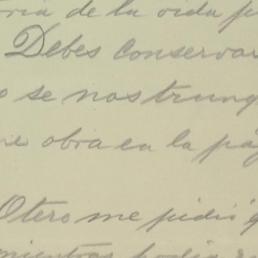 oria de la vida p
Debes conservar
o se nos trunq
ne obra en la pág
Otero me pidió q
mientras podia